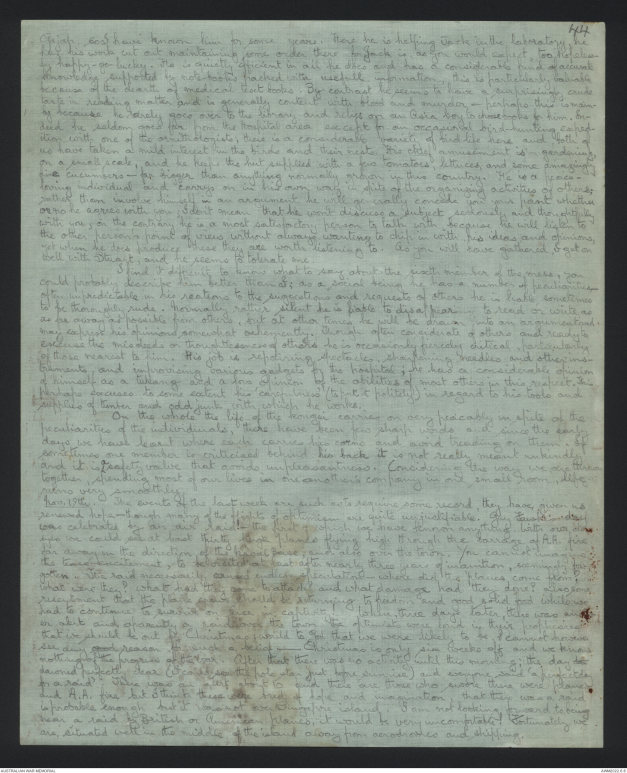 44
Gajap, so I have known him for some years. Here he is helping Jack in the laboratory, he
has his work cut out maintaining some order there for Jack is, as you would expect, too
by happy-go-lucky. He is quietly efficient in all he does and has a considerable fund of accurate
knowledge, supported by note-books packed with useful information, this is particularly valuable
because of the dearth of medical text books. By contrast he seems to have a surprisingly crude
taste in reading matter and is generally content with blood and murder — perhaps this is
as because he rarely goes over to the library and relies on an Asia boy to choose books for him. In-
deed he seldom goes far from the hospital area except for an occasional bird-hunting expedi-
tion with one of the ornithologists, there is a considerable variety of birdlife here and both of
us have taken a mild interest in the birds and their nests. His chief amusement is gardening
on a small scale, and he keeps the hut supplied with a few tomatoes, lettuces, and some amazingly
fine cucumbers — far bigger than anything normally grown in this country. He is a peace-
loving individual and carries on in his own way in spite of the organising activities of others;
rather than involve himself in an argument he will generally concede you your point whether
or no he agrees with you. I don't mean that he won't discuss a subject seriously and thoughtfully
with you, on the contrary he is a most satisfactory person to talk with because he will listen to
the other person's point of view without always wanting to chip in with his ideas and opinions,
yet when he does produce these they are worth listening to. As you will have gathered I get on
well with Stuart, and he seems to tolerate me.
I find it difficult to know what to say about the sixth member of the mess, you
could probably describe him better than I; as a social being he has a number of peculiarities
often unpredictable in his reactions to the suggestions and requests of others he is liable sometimes
to be thoroughly rude. Normally rather silent he is liable to disappear to read or write as
as far away as possible from others, but at other times he will be drawn into an argument and
may express his opinions somewhat bitterly. Though often considerate of others and ready to
excuse the misdeeds or thoughtlessness of others he is occasionally fiercely critical, particularly
of those nearest to him. His job is repairing spectacles, sharpening needles and other ins-
truments, and improvising various gadgets for the hospital; he has a considerable opinion
of himself as a and a low opinion of the abilities of most others in this respect. This
perhaps excuses to some extent his carefulness (to put it politely) in regard to his tools and
supplies of timber and odd junk with which he works.
On the whole the life of the menage carries on very peaceably in spite of the
peculiarities of the individuals, there have been few sharp words and since the early
days we have learnt where each carries his corns and avoid treading on them. If
sometimes one member is criticised behind his back it is not really meant unkindly
and it is a safety valve that avoids unpleasantness. Considering the way we are thrown
together, spending most of our lives in one another's company in one small room, life
runs very smoothly.
Nov. 19th. The events of the last week are such as to require some record, they have given us
renewed hope — though many of the flights of optimism are quite unjustifiable.
was celebrated by an air raid, the first which we have known anything. With our own
eyes we could see at least thirty planes flying high through the barrage of A.A. fire
far away in the direction of the and also over the town. You cannot imagine
the excitement, to see that at last after nearly three years of inanition, seemingly for-
gotten. The raid necessarily caused speculation — where did the planes come from?
what were they? what had they attacked and what damage had they done?
result was that the place would be stepping to freedom and God's good food while we
had to continue to survive on rice in captivity. When three days later there was
an alert and apparently a raid over the town the optimists were loud in their assurances
that we should be out by Christmas (would to God that we were likely to be, I cannot however
see any good reason for such a belief — Christmas is only six weeks off and we know
nothing of the progress of the war. After that there was no activity until this morning, the day
dawned perfectly clear (it could see the pole star just before sunrise) and everyone said a perfect day
for a raid. There was an alert at and there are those who swore there were planes
and A.A. fire but I think these are bred of hope and imagination — that they was a raid
is probable enough but it was not over Singapore island. I am not looking forward to being
near a raid by British or American planes, it would be very uncomfortable! Fortunately we
are situated well in the middle of the island away from aerodromes and shipping.
AUSTRALIAN WAR MEMORIAL